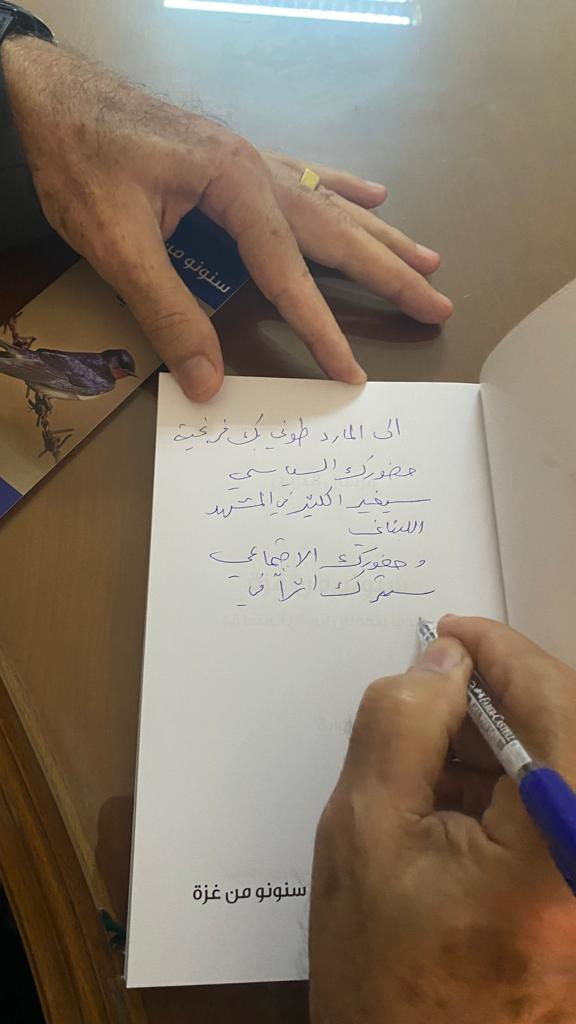 سنونو من
الى المارد طوني بك فرنجية
حضورك السياسي
سيغير الكثير في المشهد
اللبناني
و حضورك الاجتماعي
سيترك اثراً في
سنونو من غزة